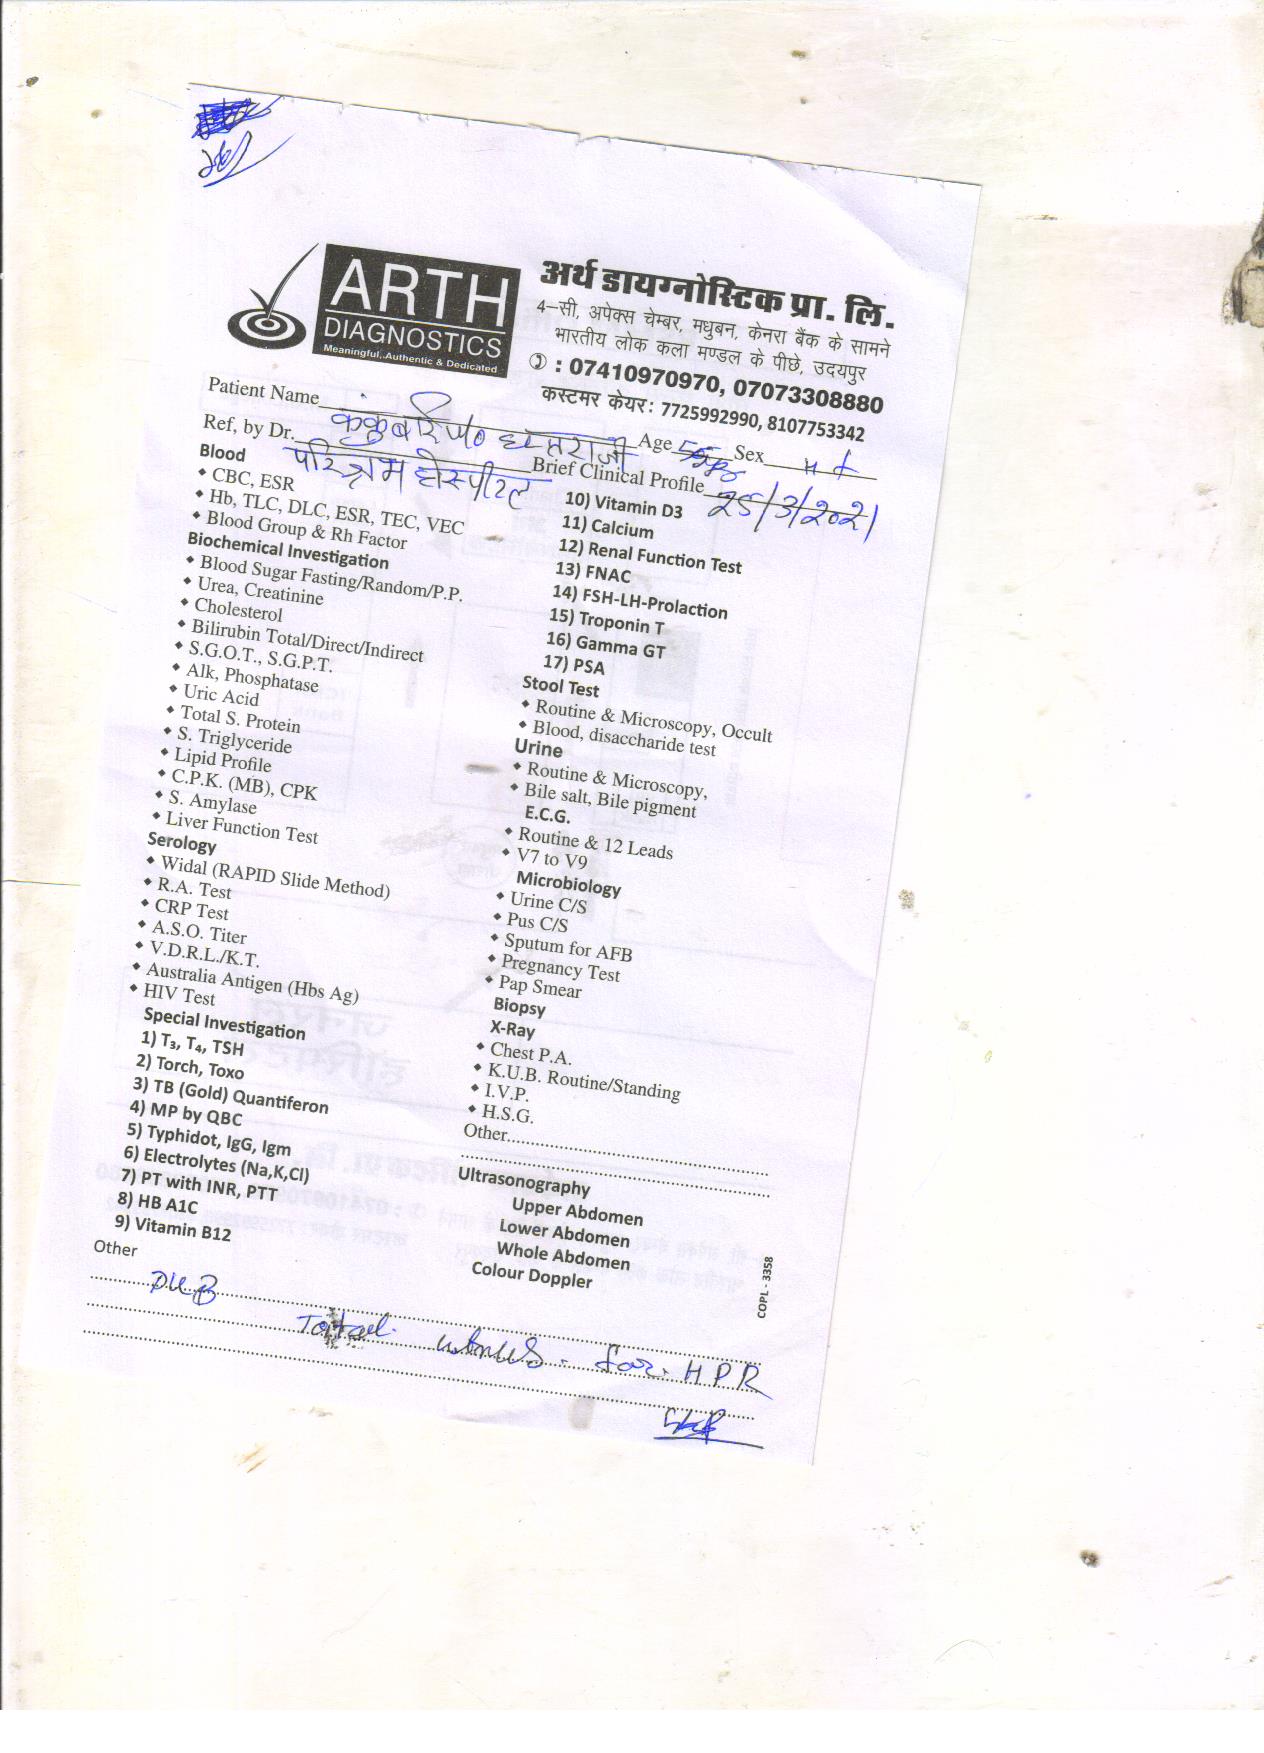 ARTH
DIAGNOSTICS
Meaningful..Authentic & Dedicated
अर्थ डायग्नोस्टिक प्रा. लि.
4–सी, अपेक्स चेम्बर, मधुबन, केनरा बैंक के सामने
भारतीय लोक कला मण्डल के पीछे, उदयपुर
✆ : 07410970970, 07073308880
कस्टमर केयर: 7725992990, 8107753342
Patient Name कंकुबरि w/o Age Sex
Ref, by Dr. परिश्रम होस्पीटल Brief Clinical Profile 25/3/2021
Blood
CBC, ESR
Hb, TLC, DLC, ESR, TEC, VEC
Blood Group & Rh Factor
Biochemical Investigation
Blood Sugar Fasting/Random/P.P.
Urea, Creatinine
Cholesterol
Bilirubin Total/Direct/Indirect
S.G.O.T., S.G.P.T.
Alk, Phosphatase
Uric Acid
Total S. Protein
S. Triglyceride
Lipid Profile
C.P.K. (MB), CPK
S. Amylase
Liver Function Test
Serology
Widal (RAPID Slide Method)
R.A. Test
CRP Test
A.S.O. Titer
V.D.R.L./K.T.
Australia Antigen (Hbs Ag)
HIV Test
Special Investigation
1) T₃, T₄, TSH
2) Torch, Toxo
3) TB (Gold) Quantiferon
4) MP by QBC
5) Typhidot, IgG, Igm
6) Electrolytes (Na,K,Cl)
7) PT with INR, PTT
8) HB A1C
9) Vitamin B12
Other
10) Vitamin D3
11) Calcium
12) Renal Function Test
13) FNAC
14) FSH-LH-Prolaction
15) Troponin T
16) Gamma GT
17) PSA
Stool Test
Routine & Microscopy, Occult
Blood, disaccharide test
Urine
Routine & Microscopy,
Bile salt, Bile pigment
E.C.G.
Routine & 12 Leads
V7 to V9
Microbiology
Urine C/S
Pus C/S
Sputum for AFB
Pregnancy Test
Pap Smear
Biopsy
X-Ray
Chest P.A.
K.U.B. Routine/Standing
I.V.P.
H.S.G.
Other
Ultrasonography
Upper Abdomen
Lower Abdomen
Whole Abdomen
Colour Doppler
COPL - 3358
DUB
Total. for. HPR